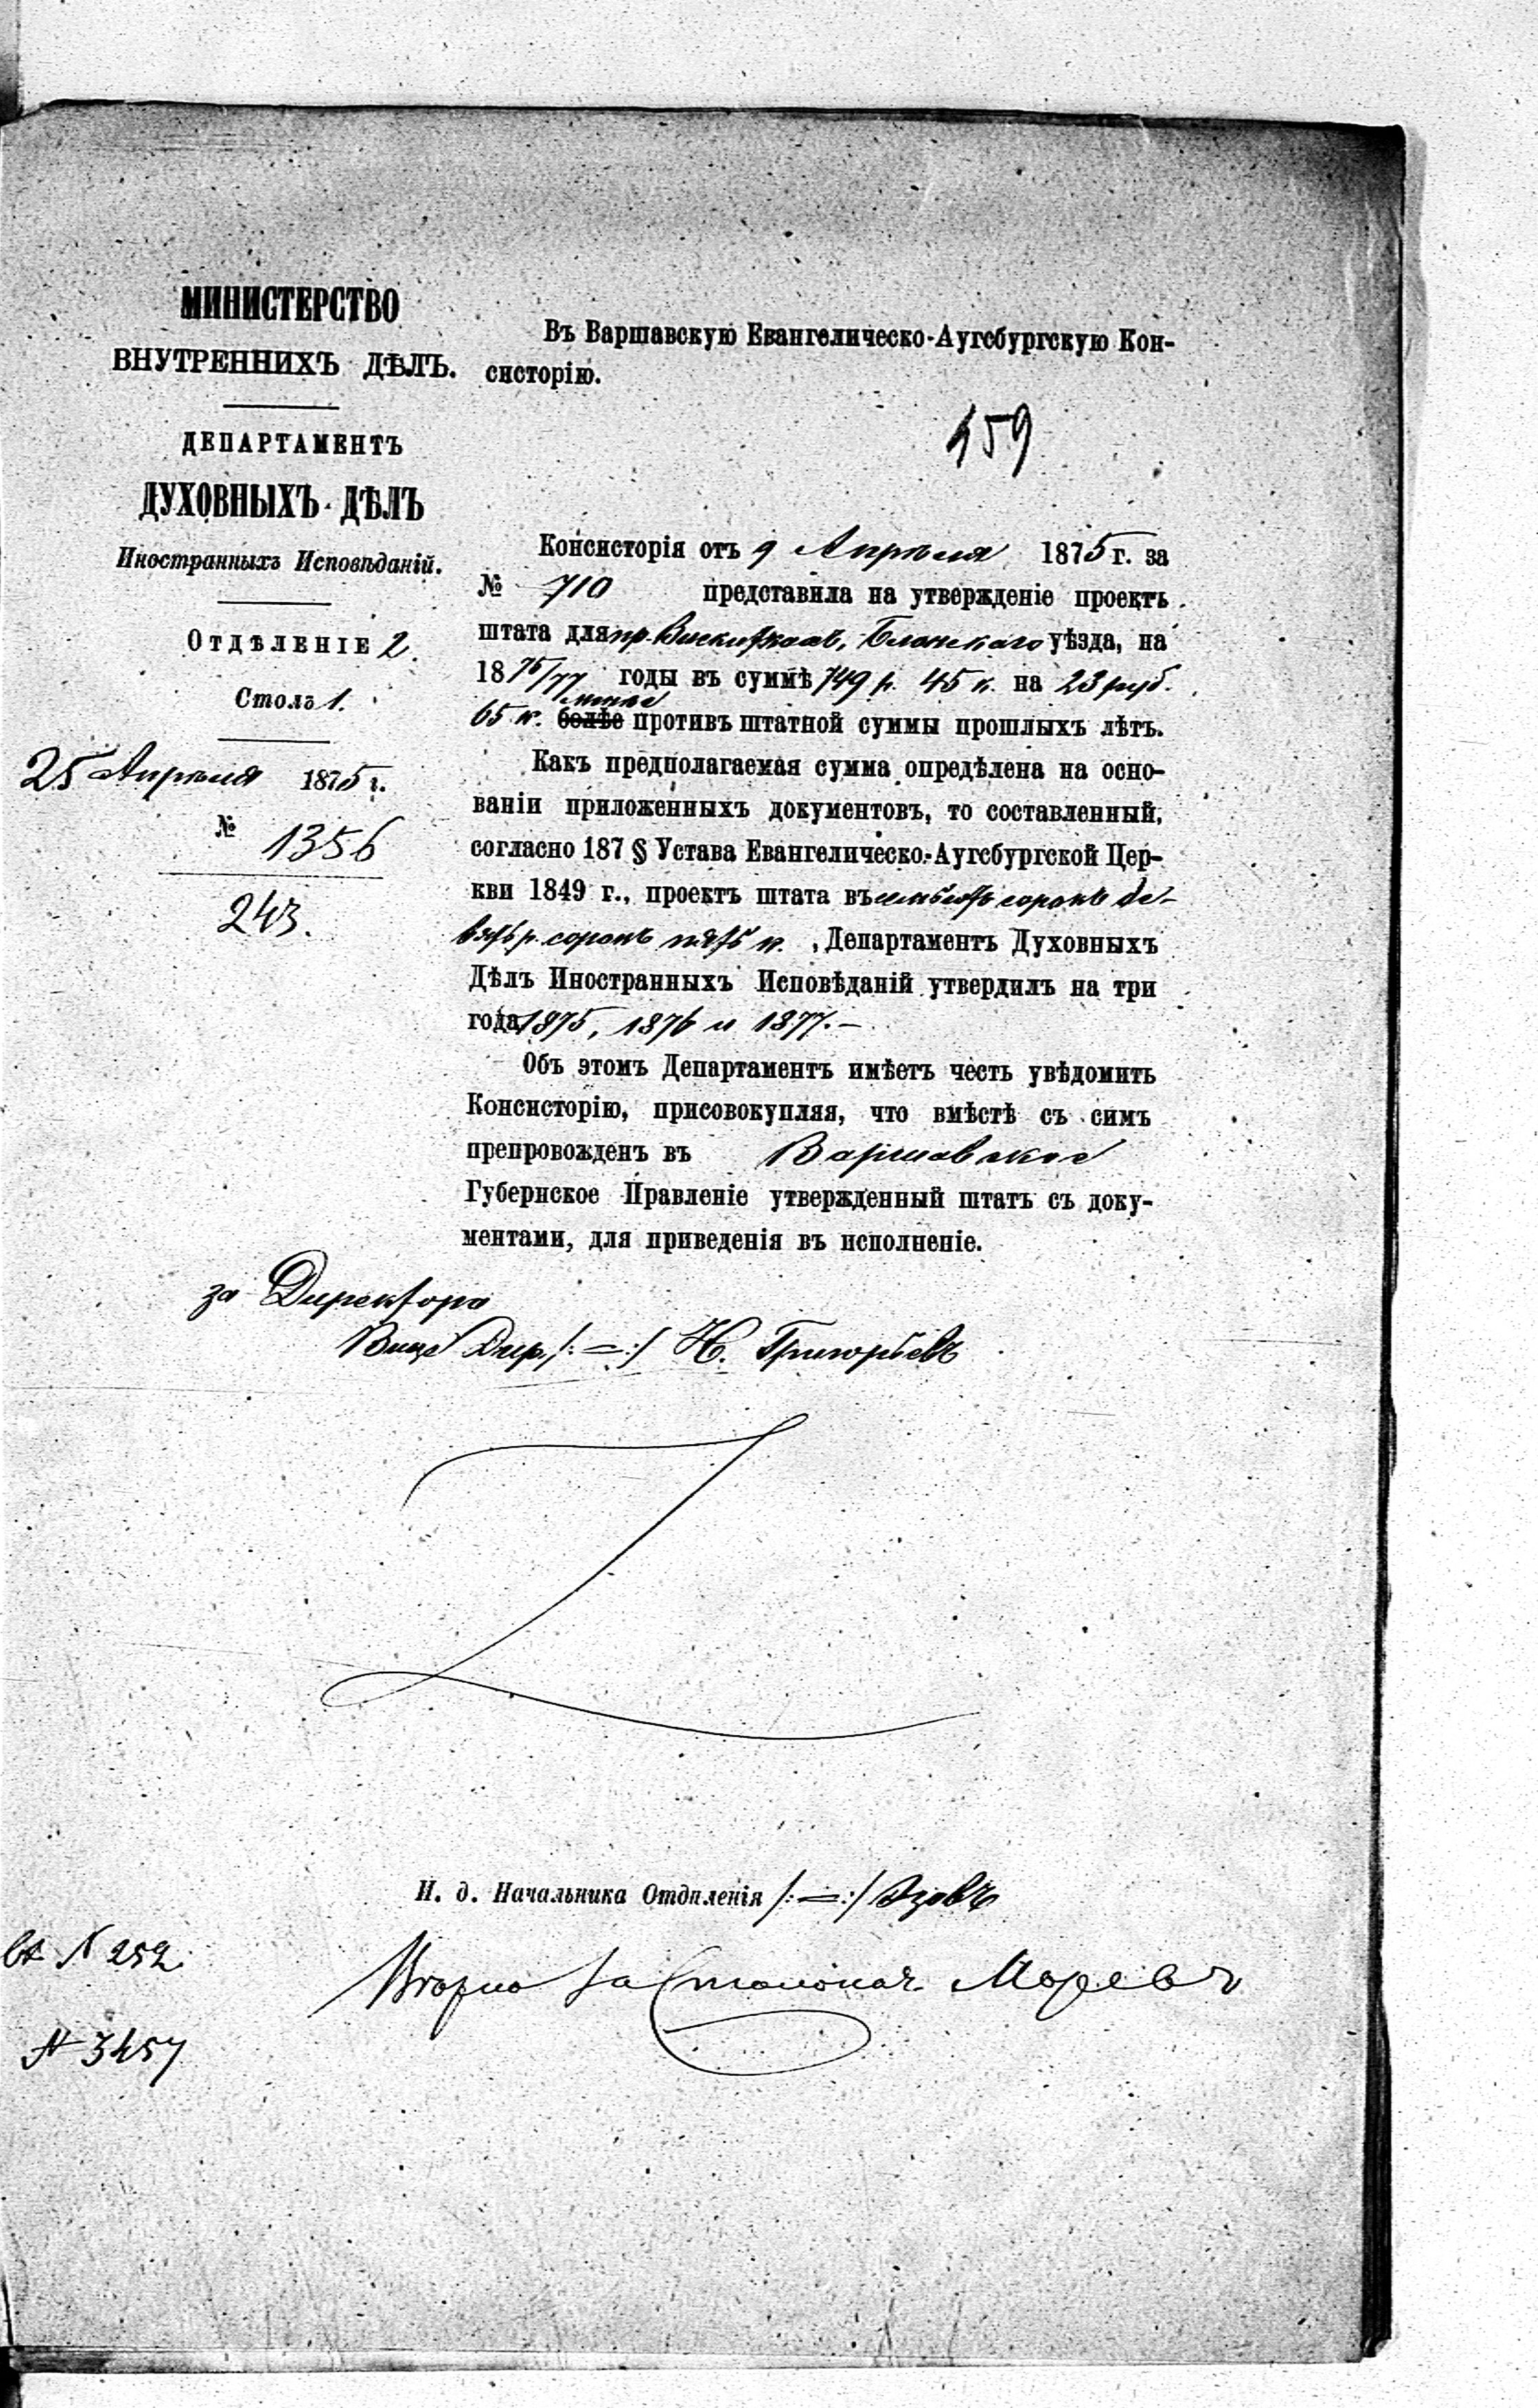 МИНИСТЕРСТВО
ВНУТРЕННИХЪ ДѢЛЪ.
ДЕПАРТАМЕНТЪ
ДУХОВНЫХЪ ДѢЛЪ
Иностранныхъ Исповѣданій.
ОТДѢЛЕНІЕ 2.
Столъ 1.
25 Апрѣля 1875 г.
№ 1356
243.
Въ Варшавскую Евангелическо-Аугсбургскую Кон-
систорію.
459
Консисторія отъ 9 Апрѣля 1875 г. за
№ 710 представила на утвержденіе проектъ
штата для пр. Вискиткахъ, Блонскаго уѣзда, на
1875/77 годы въ суммѣ 749 р. 45 к. на 23 руб.
менѣе
65 к. болѣе противъ штатной суммы прошлыхъ лѣтъ.
Какъ предполагаемая сумма опредѣлена на осно-
ваніи приложенныхъ документовъ, то составленный,
согласно 187 § Устава Евангелическо-Аугсбургской Цер-
кви 1849 г., проектъ штата въ семьсотъ сорокъ де-
вять р. сорокъ пять к., Департаментъ Духовныхъ
Дѣлъ Иностранныхъ Исповѣданій утвердилъ на три
года 1875, 1876 и 1877.—
Объ этомъ Департаментъ имѣетъ честь увѣдомить
Консисторію, присовокупляя, что вмѣстѣ съ симъ
препровожденъ въ Варшавское
Губернское Правленіе утвержденный штатъ съ доку-
ментами, для приведенія въ исполненіе.
за Директора
Вице Дир. /:—:/ Н. Григорьевъ
И. д. Начальника Отдѣленія /:—:/ Азовъ
Вѣрно за Столонач.
№ 252.
№ 3457